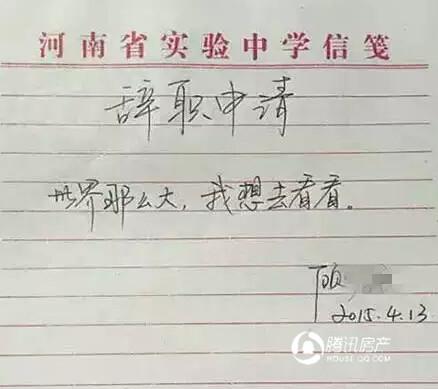 河南省实验中学信笺
辞职申请
世界那么大，我想去看看。
顾
2015.4.13
腾讯房产
HOUSE.QQ.COM